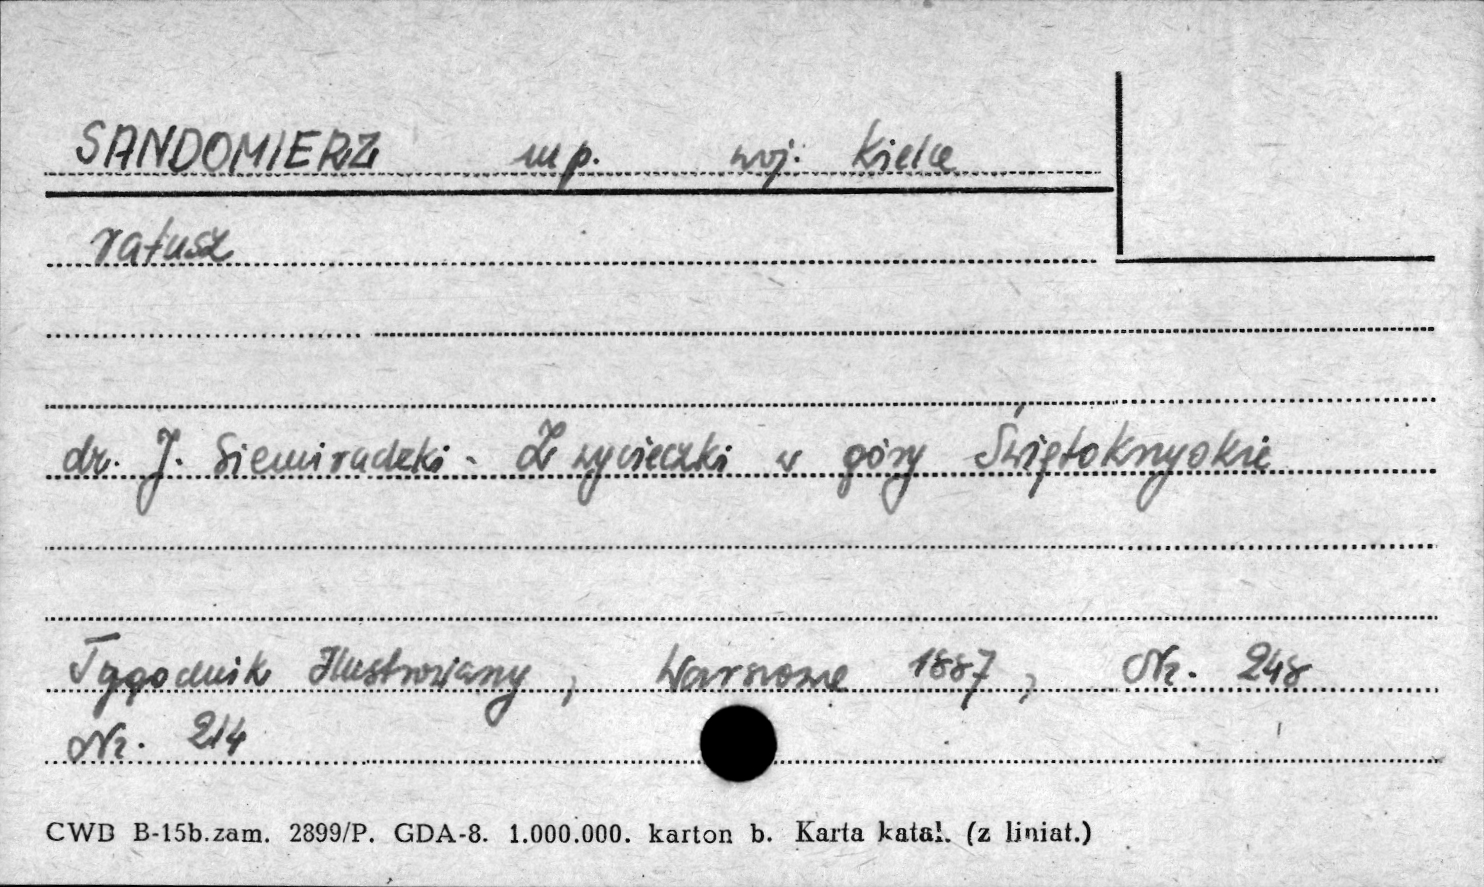 SANDOMIERZ mp. woj. Kielce
ratusz
dr. J. Siemiradzki - Z wycieczki w góry Świętokrzyskie
Tygodnik Ilustrowany, Warszawa 1887, Nr. 248
Nr. 214
CWD B-15b.zam. 2899/P. GDA-8. 1.000.000. karton b. Karta katal. (z liniat.)